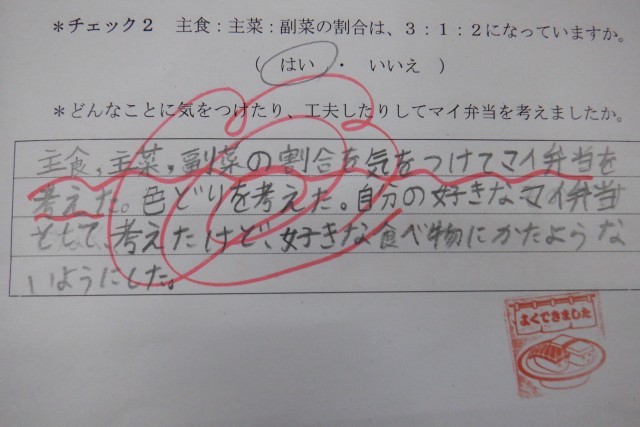 ＊チェック２　主食：主菜：副菜の割合は、３：１：２になっていますか。
（　はい　・　いいえ　）
＊どんなことに気をつけたり、工夫したりしてマイ弁当を考えましたか。
主食，主菜，副菜の割合を気をつけてマイ弁当を
考えた。色どりを考えた。自分の好きなマイ弁当
として、考えたけど、好きな食べ物にかたよらな
いようにした。
よくできました